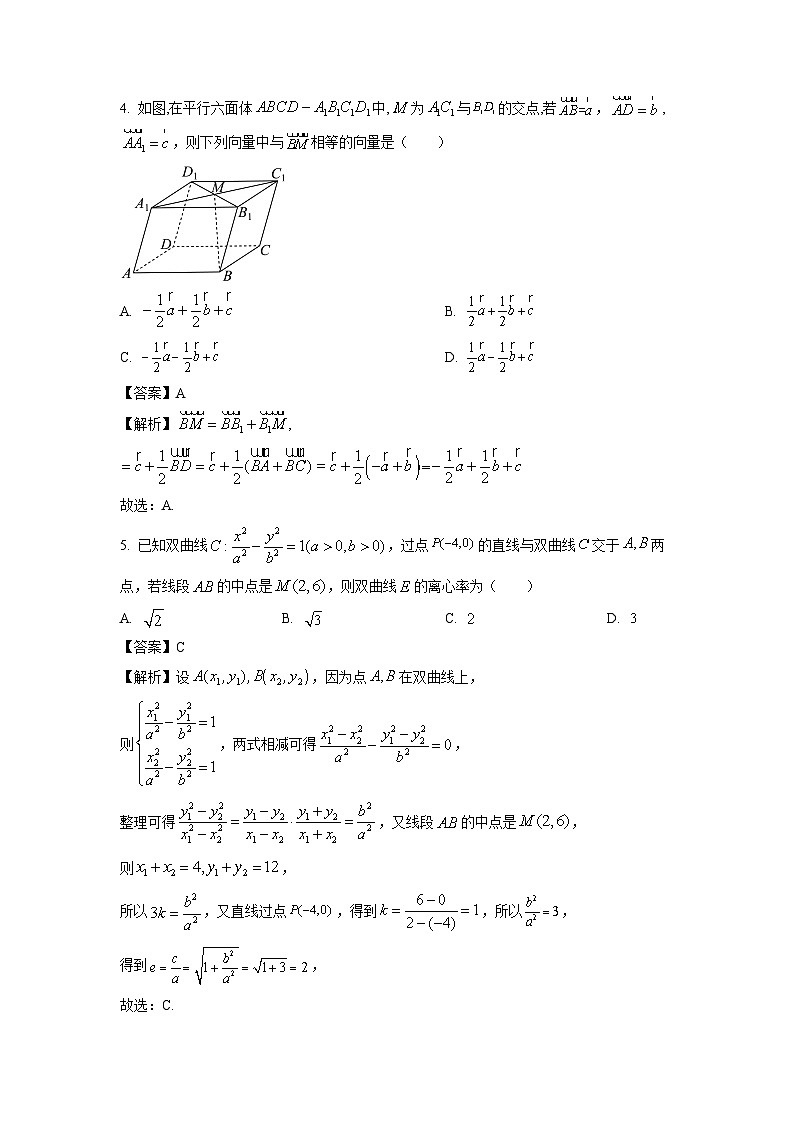 4. 如图,在平行六面体 ABCD − A₁B₁C₁D₁ 中, M 为 A₁C₁ 与 B₁D₁ 的交点,若 AB=a , AD = b ,
AA₁ = c ,则下列向量中与 BM 相等的向量是( )
D₁ C₁
M
A₁ B₁
D C
A B
A. −1/2 a + 1/2 b + c B. 1/2 a + 1/2 b + c
C. −1/2 a − 1/2 b + c D. 1/2 a − 1/2 b + c
【答案】A
【解析】 BM = BB₁ + B₁M ,
= c + 1/2 BD = c + 1/2 (BA + BC) = c + 1/2 (−a + b) = −1/2 a + 1/2 b + c
故选:A.
5. 已知双曲线 C : x²/a² − y²/b² = 1(a > 0, b > 0) ,过点 P(−4,0) 的直线与双曲线 C 交于 A, B 两
点,若线段 AB 的中点是 M (2, 6) ,则双曲线 E 的离心率为( )
A. √2 B. √3 C. 2 D. 3
【答案】C
【解析】设 A(x₁, y₁), B(x₂, y₂) ,因为点 A, B 在双曲线上,
则 { x₁²/a² − y₁²/b² = 1
x₂²/a² − y₂²/b² = 1 ,两式相减可得 (x₁² − x₂²)/a² − (y₁² − y₂²)/b² = 0 ,
整理可得 (y₁² − y₂²)/(x₁² − x₂²) = (y₁ − y₂)/(x₁ − x₂) · (y₁ + y₂)/(x₁ + x₂) = b²/a² ,又线段 AB 的中点是 M (2, 6) ,
则 x₁ + x₂ = 4, y₁ + y₂ = 12 ,
所以 3k = b²/a² ,又直线过点 P(−4,0) ,得到 k = (6 − 0)/(2 − (−4)) = 1 ,所以 b²/a² = 3 ,
得到 e = c/a = √(1 + b²/a²) = √(1+3) = 2 ,
故选:C.